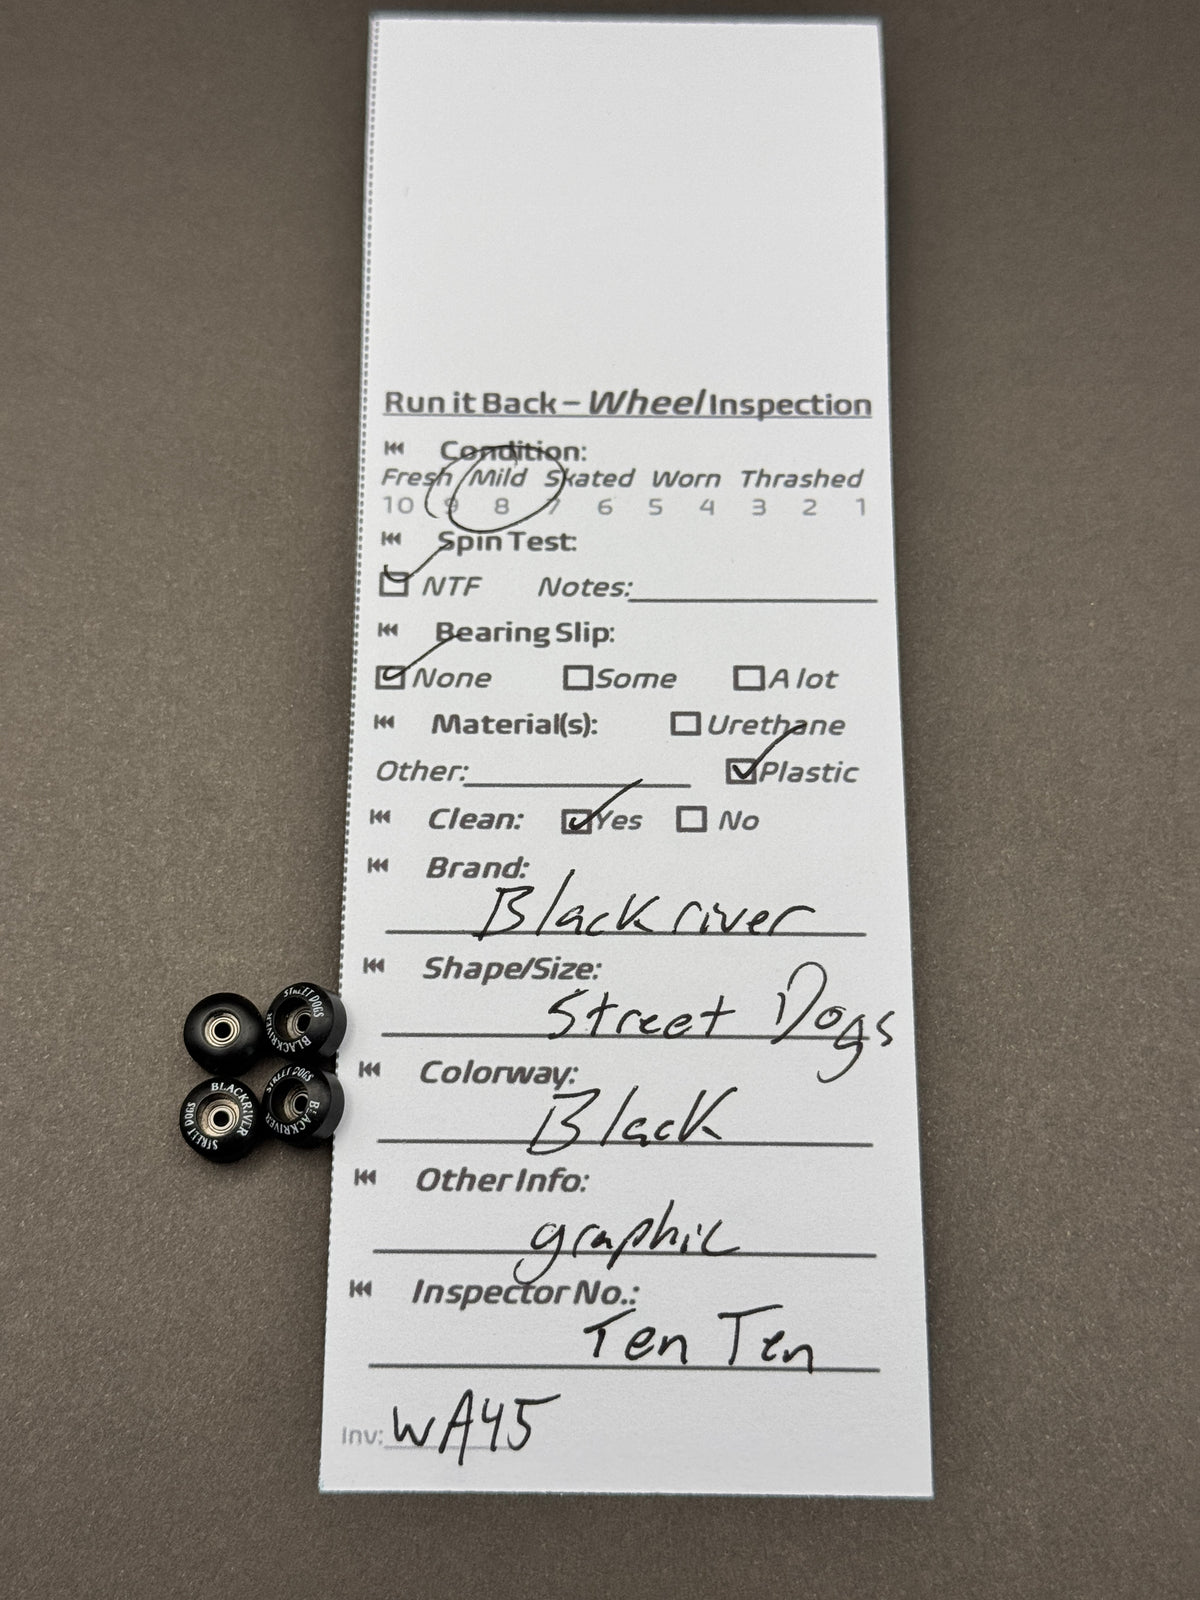 Run it Back – Wheel Inspection
Condition:
Fresh Mild Skated Worn Thrashed
10 9 8 7 6 5 4 3 2 1
Spin Test:
NTF Notes:
Bearing Slip:
None Some A lot
Material(s): Urethane
Other: Plastic
Clean: Yes No
Brand:
Blackriver
Shape/Size:
Street Dogs
Colorway:
Black
Other Info:
graphic
Inspector No.:
Ten Ten
Inv: WA45
STREET DOGS
BLACKRIVER
BLACKRIVER
STREET DOGS
STREET DOGS
BLACKRIVER